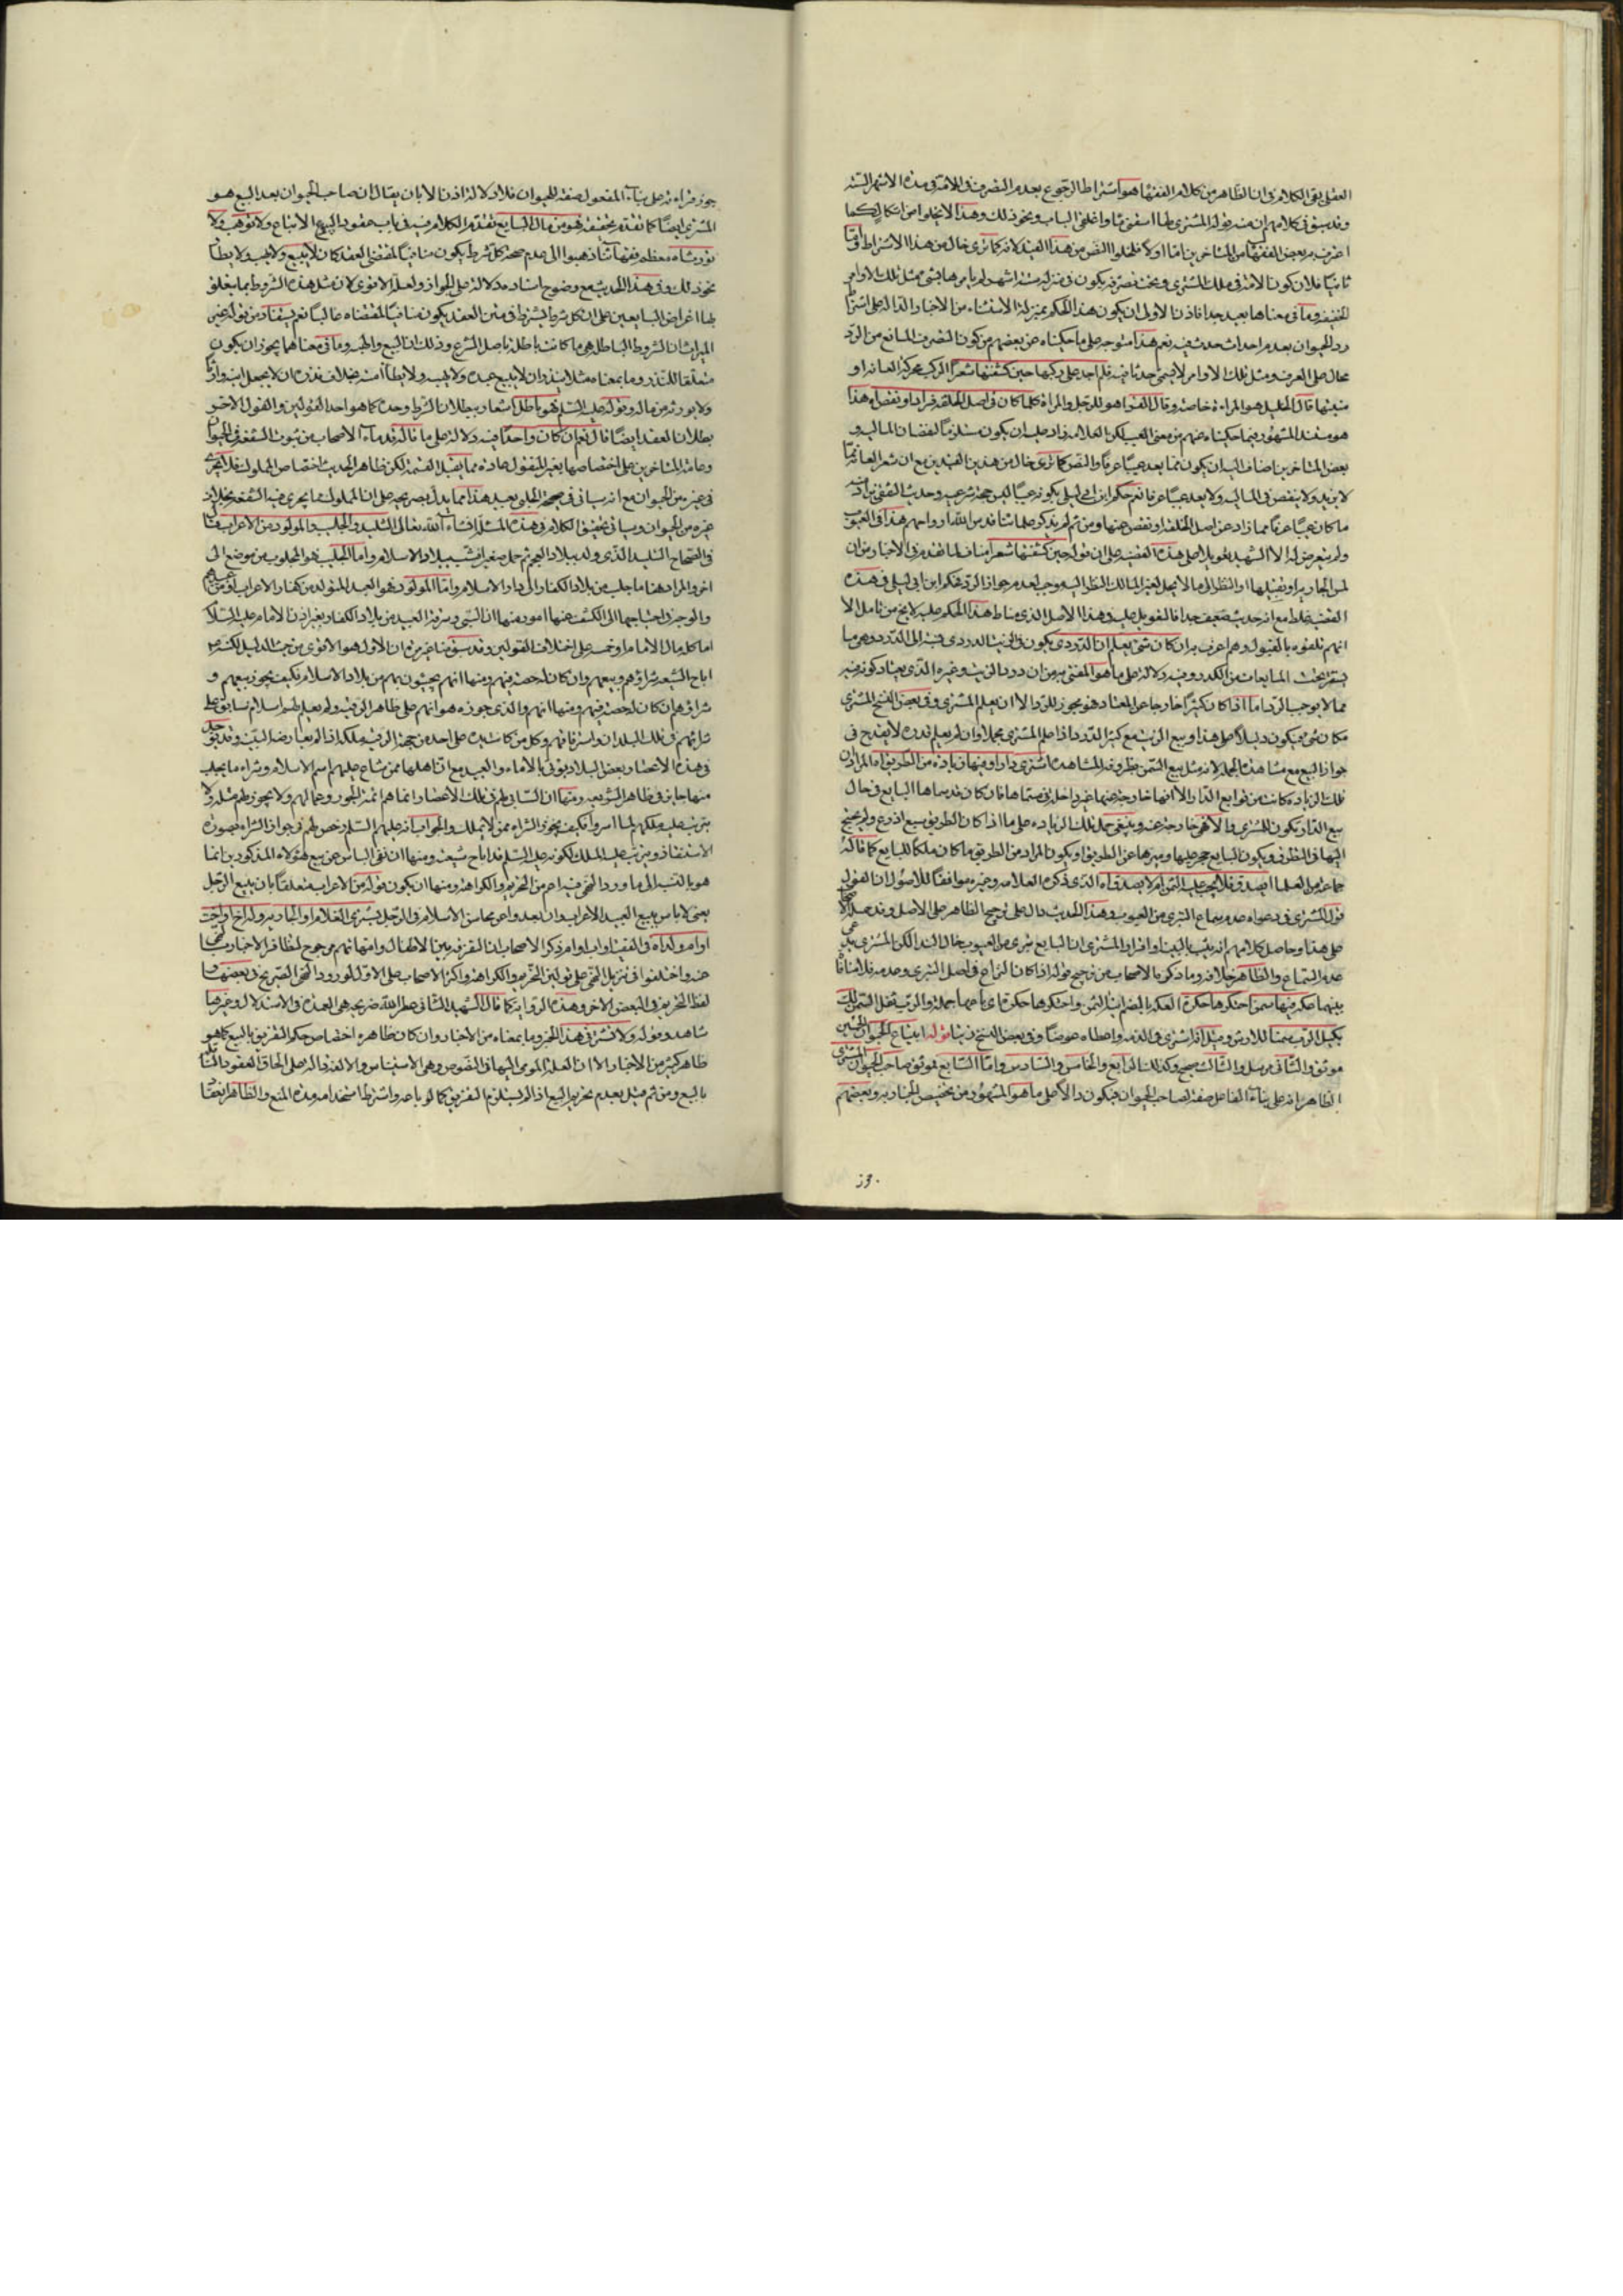 العقلى بقى الكلام فى ان الظاهر من كلام الفقهاء هو اشتراط الرجوع بعدم التصرف فى الامة فى مدة الاشهر الستة
وقد سبق فى كلامهم ان منه قول المشترى لها اسقنى ماء واغلقى الباب ونحو ذلك وهذا لا يخلو من اشكال كما
اعترف به بعض الفقهاء من المتاخرين اما اولا فلخلو النص من هذا القيد لانه كما ترى خال من هذا الاشتراط واما
ثانيا فلان كون الامة فى ملك المشترى وتحت تصرفه يكون فى منزله ستة اشهر لم يامرها بشئ مثل تلك الاوامر
الخفيفة وما فى معناها بعيد جدا فاذن الاولى ان يكون هذا الحكم بمنزلة الاستثناء من الاخبار الدالة على اشتراط
رد الحيوان بعدم احداث حدث فيه نعم هذا متوجه على ما حكيناه عن بعضهم من كون التصرف المانع من الرد
محال على العرف ومثل تلك الاوامر لا يسمى حدثا فيه فلم اجد على ركبها حين كشفتها شعرا الركب محركة العانة او
منبتها قال الخليل هو للمراة خاصة وقال الفراء هو للرجل والمراة كلما كان فى اصل الخلقة فزاد او نقص اه هذا
هو مستند المشهور فيما حكيناه عنهم من معنى العيب لكن العلامه زاد عليه ان يكون مستلزما لنقصان المالية و
بعض المتاخرين اضاف اليه ان يكون مما يعد عيبا عرفا والنص كما ترى خال من هذين القيدين مع ان شعر العانة مما
لا يزيد ولا ينقص فى المالية ولا يعد عيبا عرفا نعم حكم ابن ابى ليلى بكونه عيبا ليس حجة شرعية وحديث الثقفى
ما كان عيبا عرفا مما زاد عن اصل الخلقة او نقص عنها ومن ثم لم يذكر علمائنا قدس الله ارواحهم هذا فى العيوب
ولم يتعرض له الا الشهيد تعويلا على هذه القضية على ان قوله حين كشفتها شعرا مناف لما تقدم فى الاخبار من ان
لمس الجارية او تقبيلها او النظر الى ما لا يحل لغير المالك النظر اليه موجب لعدم جواز الرد فحكم ابن ابى ليلى فى هذه
القضية غلط مع انه حديث ضعيف جدا فالتعويل عليه وهذا الاصل الذى مناط هذا الحكم عليه لا يخ من تامل الا
انهم تلقوه بالقبول وهم اعرف به ان كان شئ يعلم ان الدردى يكون فى الزيت الدردى
مما لا يوجب الرد اما اذا كان كثيرا خارجا عن المعتاد فهو مجوز للرد الا ان يعلم المشترى وفى بعض النسخ المشترى
جواز البيع مع مشاهدة الجملة لانه مثل بيع السمن بظروفه المشاهدة اشترى دارا وفيها زيادة من الطريق اه المراد ان
تلك الزيادة كانت من توابع الدار الا انها خارجة عنها غير داخلة فى مسماها فان كان قد سماها البايع فى حال
بيع الدار تكون للمشترى والا فهى خارجة عنه وينبغى حمل تلك الزيادة على ما اذا كان الطريق سبع اذرع ولم يحتج
اليها فى التطرق ويكون البايع حجر عليها وميزها عن الطريق او يكون المراد من الطريق ما كان ملكا للبايع كما قاله
جماعة من العلماء ايصدق فلا يجب عليه الثمن ام لا يصدق اه الذى ذكره العلامه وغيره موافقا للاصول ان القول
قول المشترى فى دعواه عدم سماع التبرى من العيوب وهذا الحديث دال على ترجيح الظاهر على الاصل
على هذا وحاصل كلامهم انه يثبت بالبينة او اقرار المشترى ان البايع تبرى من العيوب حال الندا لكن المشترى
عدم السماع والظاهر خلافه وما ذكره الاصحاب من ترجيح قوله اذا كان النزاع فى اصل التبرى وعدمه فلا منافاة
بينهما
بكيل الرب سمنا
موثق والثانى مرسل والثالث صحيح وكذلك الرابع والخامس والسادس واما السابع فموثق صاحب الحيوان المشترى
الظاهر انه على بناء الفاعل صفة لصاحب الحيوان فيكون دالا على ما هو المشهور من تخصيص الخيار به وبعضهم
جوز
جوز قراءته على بناء المفعول صفة للحيوان فلا دلالة اذن الا بان يقال ان صاحب الحيوان بعد البيع هو
المشترى ايضا كما تقدم تحقيقه فهو من مال البايع تقدم الكلام فيه فى باب عقود البيع الا تباع ولا توهب ولا
تورث اه معظم فقهائنا ذهبوا الى عدم صحة كل شرط يكون منافيا لمقتضى العقد كان لا يبيع ولا يهب ولا يطأ
نحو ذلك وفى هذا الحديث مع وضوح اسناده دلالة على الجواز ولعله الاقوى لان مثل هذه الشروط انما يتعلق
بها اغراض البايعين على ان كل شرط يشترط فى متن العقد يكون منافيا لمقتضاه غالبا نعم يستفاد من قوله غير
الميراث ان الشروط الباطلة هى ما كانت باطلة باصل الشرع وذلك ان البيع والهبة وما فى معناهما يجوز ان يكون
متعلقا للنذر وما بمعناه مثلا ينذر ان لا يبيع عبده ولا يهبه ولا يطأ امته بخلاف نذره ان لا يجعل ابنه وارثا
ولا يورثه من ماله وقوله عليه السلم فهو باطل اشعار ببطلان الشرط وحده كما هو احد القولين والقول الاخر
بطلان العقد ايضا قال نعم ان كان واحدا فيه دلالة على ما قاله قدماء الاصحاب من ثبوت الشفعة فى الحيوان
وعامة المتاخرين على اختصاصها بغير المنقول عادة مما يقبل القسمة لكن ظاهر الحديث اختصاص المملوك فلا يجرى
فى غيره من الحيوان مع انه سيأتى فى صحة الحلبى بعيد هذا ما يدل بصريحه على ان المملوك مما يجرى فيه الشفعة بخلاف
غيره من الحيوان وسيأتى تحقيق الكلام فى هذه المسئلة انشاء الله تعالى التليد والجليب والمولود من الاعراب
فى الصحاح التليد الذى ولد ببلاد العجم ثم حمل صغيرا فشب ببلاد الاسلام واما الجليب فهو المجلوب من موضع الى
اخر والمراد هنا ما جلب من بلاد الكفار الى دار الاسلام واما المولود فهو العبد المتولد من كفار الاعراب
والوجه فى احتياجها الى الكشف عنها امور منها ان السبى وسرقة العبيد من بلاد الكفار بغير اذن الامام عليه السلام
اما كله مال الامام او خمسه على اختلاف القولين وقد سبق منا غير مرة ان الاول هو الاقوى من حيث الدليل لكنهم
اباح الشيعة شراؤهم وبيعهم وان كان له حصة فيهم ومنها انهم يجيئون بهم من بلاد الاسلام فكيف يجوز بيعهم و
شراؤهم ان كان له حصة فيهم ومنها انهم والذى جوزه هو انهم على ظاهر الرقية ولم يعلم لهم اسلام سابق على
شرائهم فى تلك البلدان واسترقاقهم وكل من كانت يده على احد من جهة الرقية ملكه اذا لم يعارضه البينة
فى هذه الاعصار وبعض البلاد يؤتى بالاماء والعبيد مع ان اهلها ممن شاع عليهم اسم الاسلام وشراء ما يجلب
منها جايز فى ظاهر الشريعة ومنها ان السابى لهم فى تلك الاعصار انما هم ائمة الجور وعمالهم ولا يجوز لهم مثله ولا
يترتب عليه ملكهم لما اسروا فكيف يجوز الشراء ممن لا يملك والجواب انه عليهم السلم رخص لهم فى جواز الشراء بصورة
الاستنقاذ ويترتب عليه الملك لكونه عليه السلم قد اباح شيعته ومنها ان نفى الباس عن بيع هؤلاء المذكورين انما
هو بالنسبة الى ما ورد النهى فيه اعم من التحريم والكراهة ومنها ان يكون قوله من الاعراب متعلقا بان يبيع الرجل
يعنى لا باس ببيع العبيد الاعراب وان بعدوا عن محاسن الاسلام فى الرجل يشترى الغلام او الجارية وله اخ او اخت
او ام ولد اه
عنه واختلفوا فى تنزيل النهى على قولين التحريم والكراهة واكثر الاصحاب على الاول لورود النهى الصريح فى بعضها و
لفظ التحريم فى البعض الاخر وهذه الرواية كما قال الشهيد الثانى عطر الله ضريحه هى العمدة فى الاستدلال وغيرها
شاهد وقوله ولا تشتر فى هذا الخبر وما بمعناه من الاخبار وان كان ظاهره اختصاص حكم التفريق بالبيع كما هو
ظاهر كثير من الاخبار الا ان العلة المومى اليها فى النصوص وهى الاستيناس والالفة دالة على الحاق العقود الناقلة
بالبيع ومن ثم قيل بعدم تحريم البيع اذا لم يستلزم التفريق كما لو باعه واشترط استخدامه مدة المنع والظاهر ايضا